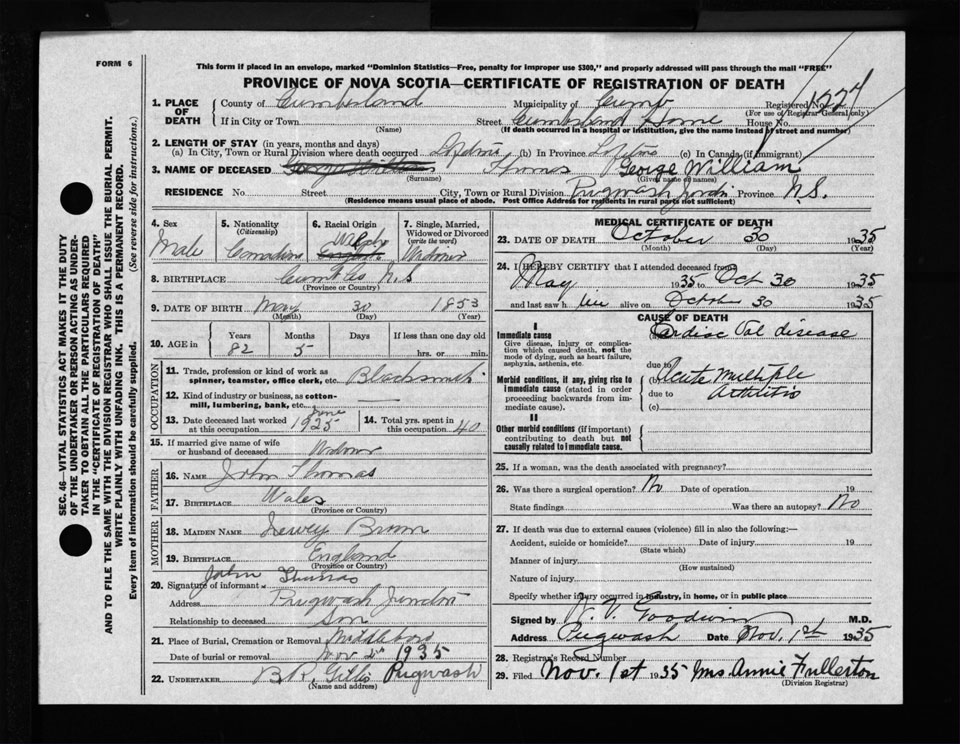 FORM 6
This form if placed in an envelope, marked "Dominion Statistics—Free, penalty for improper use $300," and properly addressed will pass through the mail "FREE"
PROVINCE OF NOVA SCOTIA—CERTIFICATE OF REGISTRATION OF DEATH
SEC. 46—VITAL STATISTICS ACT MAKES IT THE DUTY
OF THE UNDERTAKER OR PERSON ACTING AS UNDER-
TAKER TO OBTAIN ALL THE PARTICULARS REQUIRED
IN THE "CERTIFICATE OF REGISTRATION OF DEATH"
AND TO FILE THE SAME WITH THE DIVISION REGISTRAR WHO SHALL ISSUE THE BURIAL PERMIT.
WRITE PLAINLY WITH UNFADING INK. THIS IS A PERMANENT RECORD.
Every item of information should be carefully supplied. (See reverse side for instructions.)
1. PLACE OF DEATH County of Cumberland Municipality of Cumb Registered No. 1224
(For use of Registrar General only)
If in City or Town Street Cumberland Home House No.
(Name) (If death occurred in a hospital or institution, give the name instead of street and number)
2. LENGTH OF STAY (in years, months and days)
(a) In City, Town or Rural Division where death occurred Lifetime (b) In Province Lifetime (c) In Canada (if immigrant)
3. NAME OF DECEASED Thomas George William
(Surname) (Given name or names)
RESIDENCE No. Street City, Town or Rural Division Pugwash Province N.S.
(Residence means usual place of abode. Post Office Address for residents in rural parts not sufficient)
4. Sex Male
5. Nationality (Citizenship) Canadian
6. Racial Origin Welsh English
7. Single, Married, Widowed or Divorced (write the word) Widower
8. BIRTHPLACE N.S
(Province or Country)
9. DATE OF BIRTH May 30 1853
(Month) (Day) (Year)
10. AGE in Years 82 Months 5 Days If less than one day old hrs. or min.
OCCUPATION
11. Trade, profession or kind of work as spinner, teamster, office clerk, etc. Blacksmith
12. Kind of industry or business, as cotton-mill, lumbering, bank, etc.
13. Date deceased last worked at this occupation June 1925
14. Total yrs. spent in this occupation 40
15. If married give name of wife or husband of deceased Widower
FATHER
16. NAME John Thomas
17. BIRTHPLACE Wales
(Province or Country)
MOTHER
18. MAIDEN NAME Brown
19. BIRTHPLACE England
(Province or Country)
20. Signature of informant John Thomas
Address Pugwash Junction
Relationship to deceased Son
21. Place of Burial, Cremation or Removal Middleboro
Date of burial or removal Nov 2nd 1935
22. UNDERTAKER Pugwash
(Name and address)
MEDICAL CERTIFICATE OF DEATH
23. DATE OF DEATH October 30 1935
(Month) (Day) (Year)
24. I HEREBY CERTIFY that I attended deceased from
May 1935 to Oct 30 1935
and last saw h im alive on October 30 1935
CAUSE OF DEATH
I
Immediate cause
Give disease, injury or complication which caused death, not the mode of dying, such as heart failure, asphyxia, asthenia, etc.
(a) Cardiac Val disease
due to
Morbid conditions, if any, giving rise to immediate cause (stated in order proceeding backwards from immediate cause).
(b) Acute Multiple
due to Arthritis
(c)
II
Other morbid conditions (if important) contributing to death but not causally related to immediate cause.
25. If a woman, was the death associated with pregnancy?
26. Was there a surgical operation? No Date of operation 19
State findings Was there an autopsy? No
27. If death was due to external causes (violence) fill in also the following:—
Accident, suicide or homicide? Date of injury 19
(State which)
Manner of injury
(How sustained)
Nature of injury
Specify whether injury occurred in industry, in home, or in public place
Signed by Goodwin M.D.
Address Pugwash Date Nov. 1st 1935
28. Registrar's Record Number
29. Filed Nov. 1st 1935 Mrs Annie Fullerton
(Division Registrar)